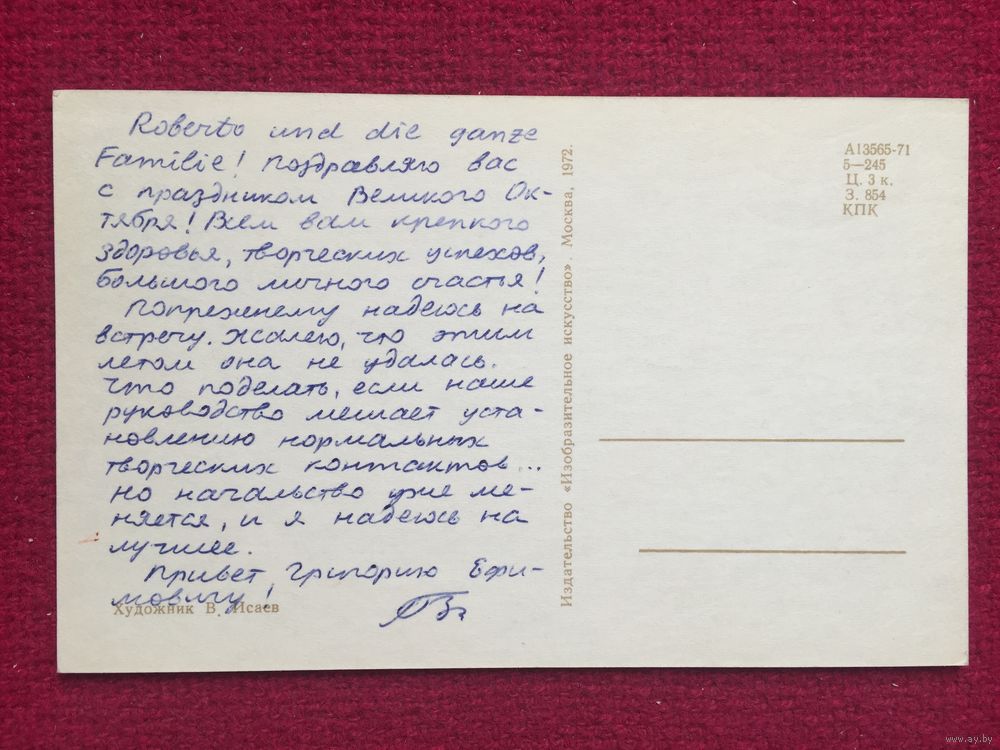 Roberto und die ganze
Familie! Поздравляю вас
с праздником Великого Ок-
тября! Всем вам крепкого
здоровья, творческих успехов,
большого личного счастья!
Попрежнему надеюсь на
встречу. Жалею, что этим
летом она не удалась.
Что поделать, если наше
руководство мешает уста-
новлению нормальных
творческих контактов...
Но начальство уже ме-
няется, и я надеюсь на
лучшее.
Привет Григорию Ефи-
мовичу!
Художник В. Исаев
Издательство «Изобразительное искусство». Москва, 1972.
А13565-71
5—245
Ц. 3 к.
З. 854
КПК
www.ay.by